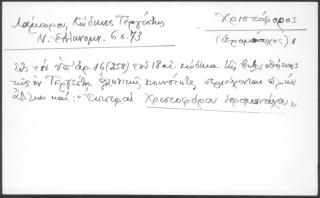 Λάμπρου, Κώδικες Τεργέστης
Ν. Ελληνομν. 6 σ. 73
Χριστόφορος
(ιερομόναχος)
Εἰς τὸν ὑπ' ἀρ. 16 (258) τοῦ 18 αἰ. κώδικα τῆς βιβλιοθήκης
τῆς ἐν Τεργέστῃ ἑλληνικῆς κοινότητος περιέχονται πλὴν
ἄλλων καὶ: "Ἐπιστολαὶ Χριστοφόρου ἱερομονάχου"